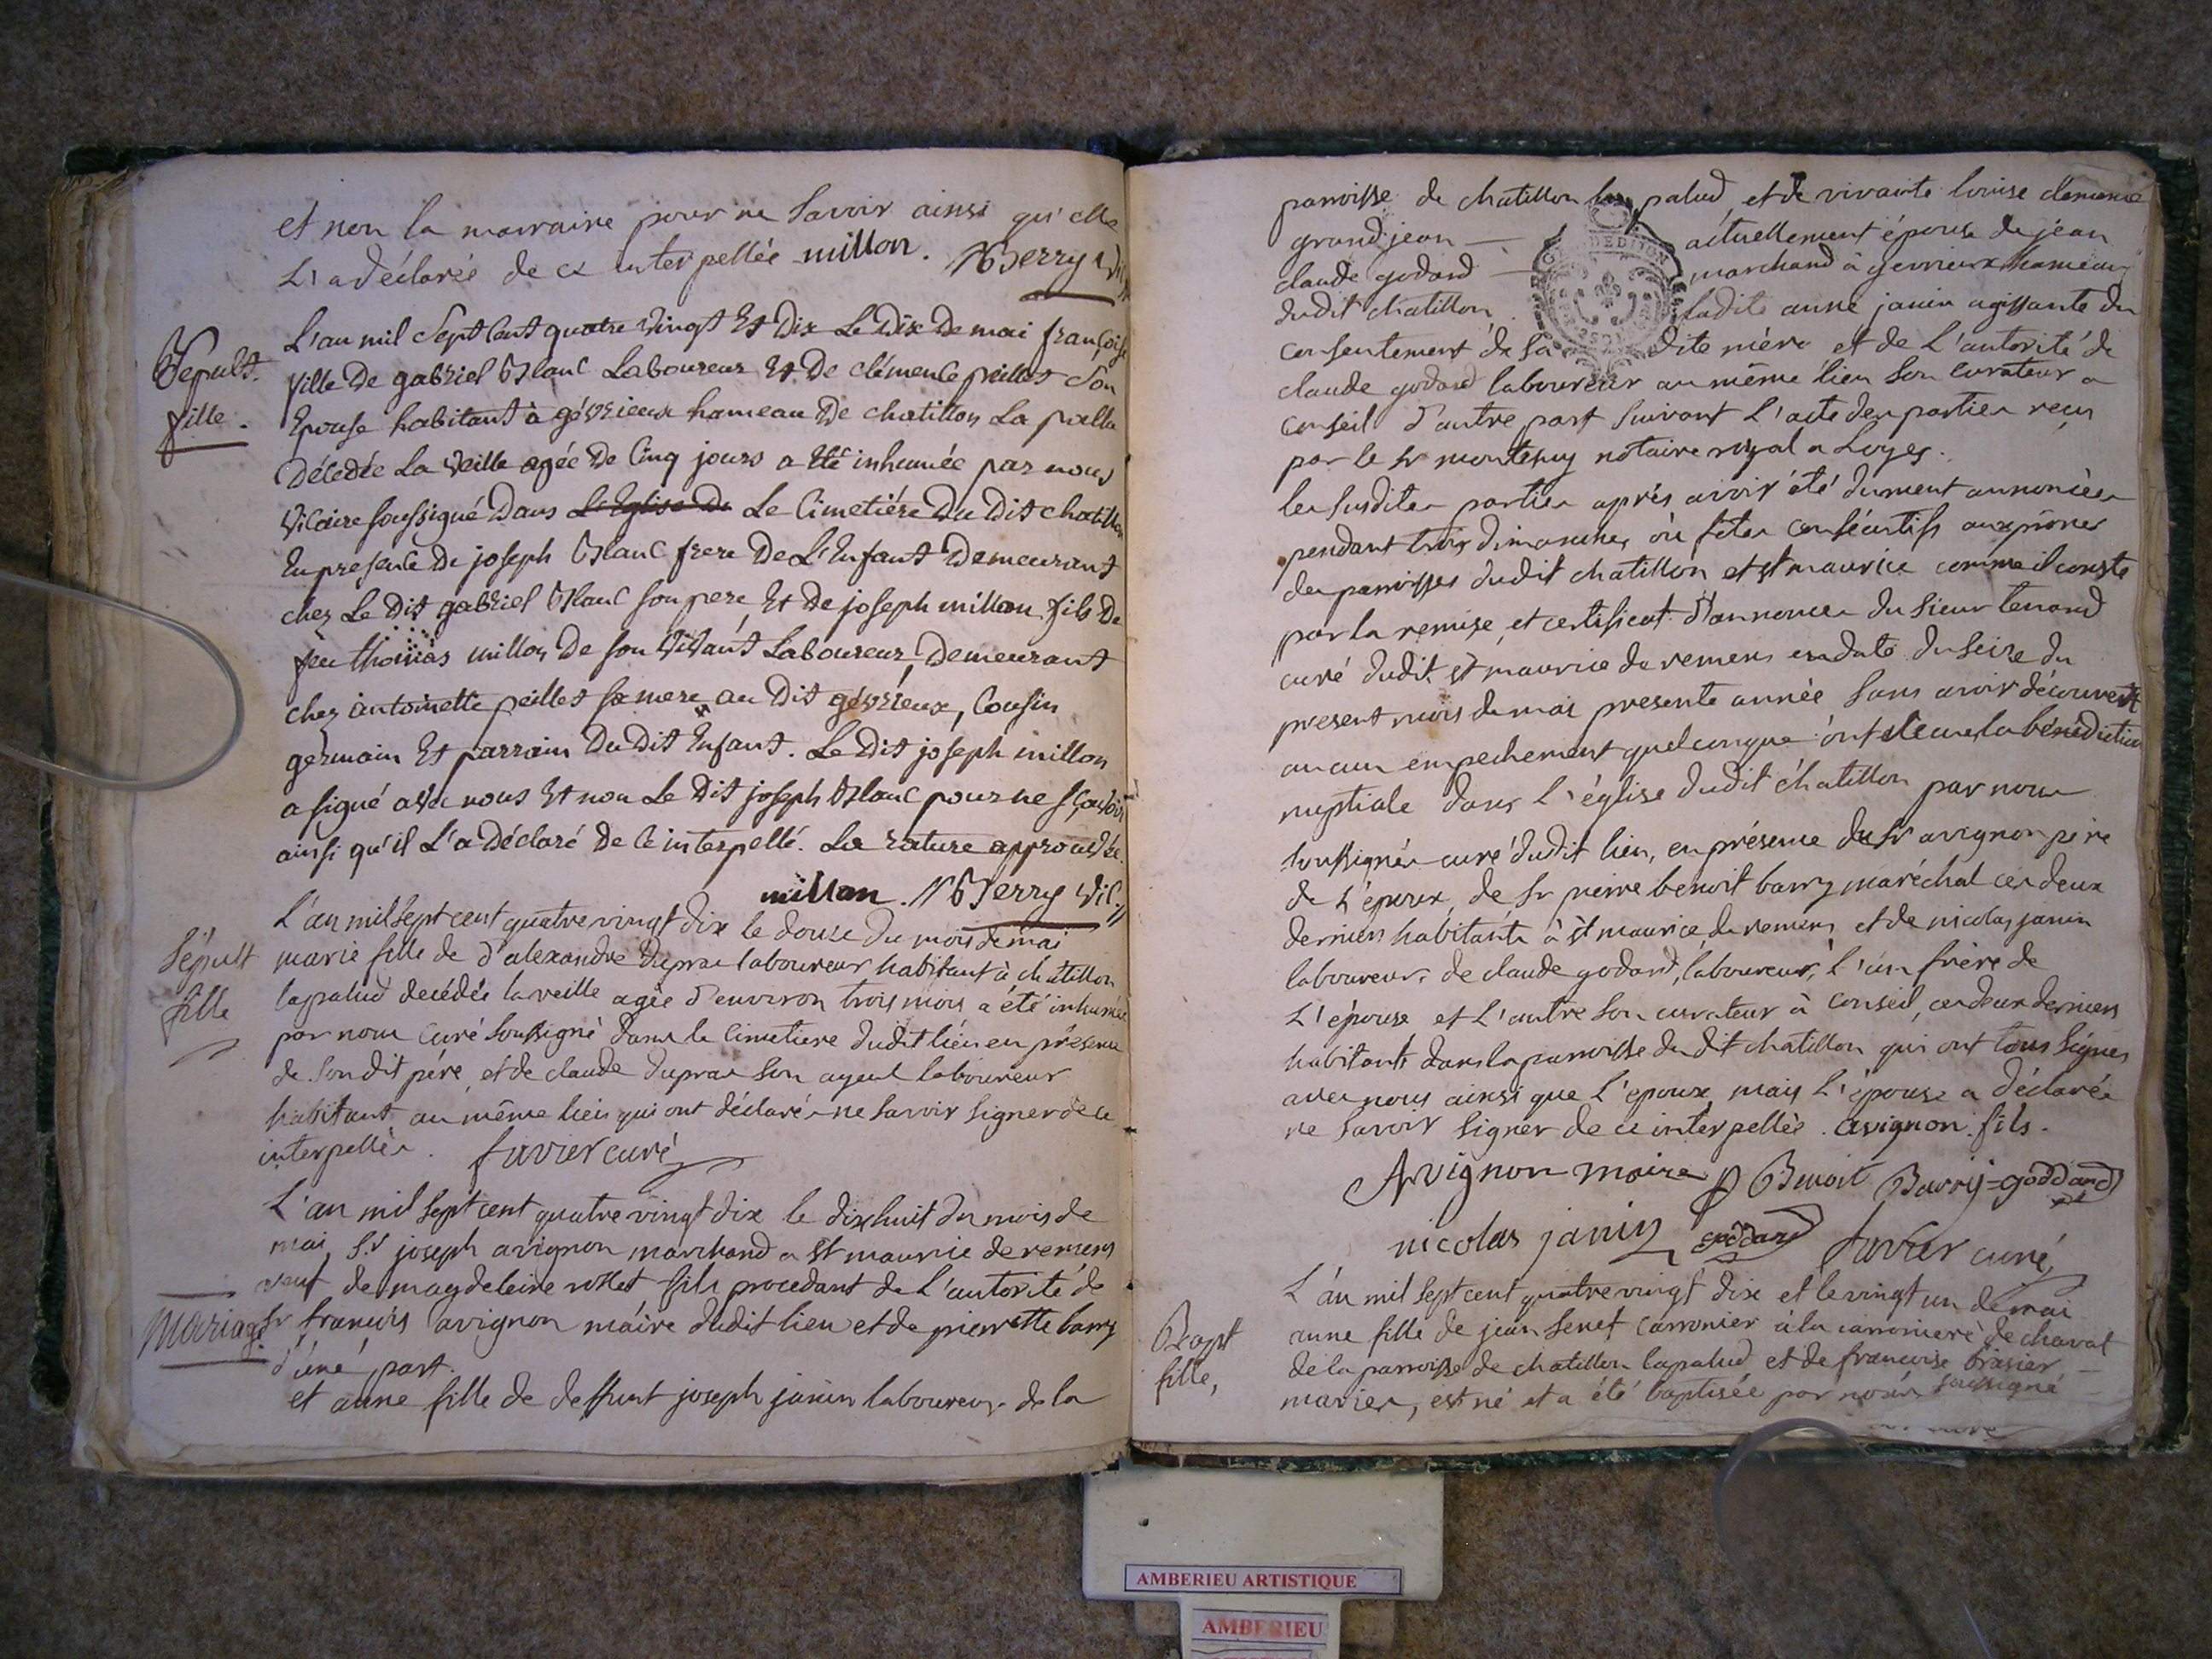 et non la marraine pour ne savoir ainsi qu'elle
L'a déclarée de ce interpellée millon. Berry Vic
Sepult.
fille.
L'an mil Sept Cent quatre Vingt Et Dix Le Dix De mai françoise
fille De gabriel Blanc Laboureur Et De clémence peillet Son
Epouse habitant à gévrieux hameau De chatillon La pallu
Décédée La Veille agée De Cinq jours a Eté inhumée par nous
Vicaire soussigné Dans L'Eglise De Le Cimetière Du Dit chatillon
En presence De joseph Blanc frere De L'Enfant Demeurant
chez Le Dit gabriel Blanc son pere, Et De joseph millon fils De
feu thomas millon De son Vivant Laboureur, Demeurant
chez antoinette peillet sa mere au Dit gévrieux, Cousin
germain Et parrain Du Dit Enfant. Le Dit joseph millon
a signé avec nous Et non Le Dit joseph Blanc pour ne sçavoir
ainsi qu'il L'a Déclaré De Ce interpellé. La rature approuvée.
millon. Berry Vic.
Sépult
fille
L'an mil sept cent quatre vingt dix le douze du mois de mai
marie fille de d'alexandre Dupras laboureur habitant à chatillon
lapalud decédée la veille agée d'environ trois mois a été inhumée
par nous curé soussigné dans le cimetiere dudit lieu en présence
de son dit père, et de claude Dupras son ayeul laboureur
habitant au même lieu qui ont déclarés ne savoir signer de ce
interpellés. favier curé
L'an mil sept cent quatre vingt dix le dixhuit du mois de
mai, Sr joseph avignon marchand a st maurice de remens
veuf de magdeleine rollet fils procedant de L'autorité de
Mariage.
Sr francois avignon maire dudit lieu et de pierrette barry
d'une part.
et anne fille de deffunt joseph janin laboureur de la
paroisse de chatillon la palud, et de vivante louise clemence
grandjean actuellement épouse de jean
claude godard marchand à gevrieux hameau
dudit chatillon ladite anne janin agissante du
consentement de sa dite mère et de L'autorité de
claude godard laboureur au même lieu son curateur a
conseil d'autre part suivant L'acte des parties reçu
par le sr montessuy notaire royal a Loyes.
les susdites parties après avoir été dument annoncées
pendant trois dimanches où fêtes consécutifs aux prônes
des paroisses dudit chatillon et st maurice comme il conste
par la remise, et certificat d'annonces du sieur tenand
curé dudit st maurice de remens en date du seize du
présent mois de mai presente année sans avoir découvert
aucun empechement quelconque ont reçu la bénédiction
nuptiale dans l'église dudit chatillon par nous
soussigné curé dudit lieu, en présence du Sr avignon père
de L'époux, de Sr pierre benoit barry maréchal ces deux
derniers habitants à st maurice de remens et de nicolas janin
laboureur de claude godard, laboureur, l'un frère de
L'épouse et L'autre son curateur à conseil, ces deux derniers
habitants dans la paroisse dudit chatillon qui ont tous signés
avec nous ainsi que L'epoux, mais L'épouse a déclarée
ne savoir signer de ce interpellée. avignon. fils.
Avignon maire p Benoit Barry = goddard
nicolas janin goddard favier curé
Bapt
fille,
L'an mil sept cent quatre vingt dix et le vingt un de mai
anne fille de jean senet carronier à la carroniere de chavat
de la paroisse de chatillon lapalud et de francoise brasier
mariés, est né et a été baptisée par nous soussigné
AMBERIEU ARTISTIQUE
AMBERIEU